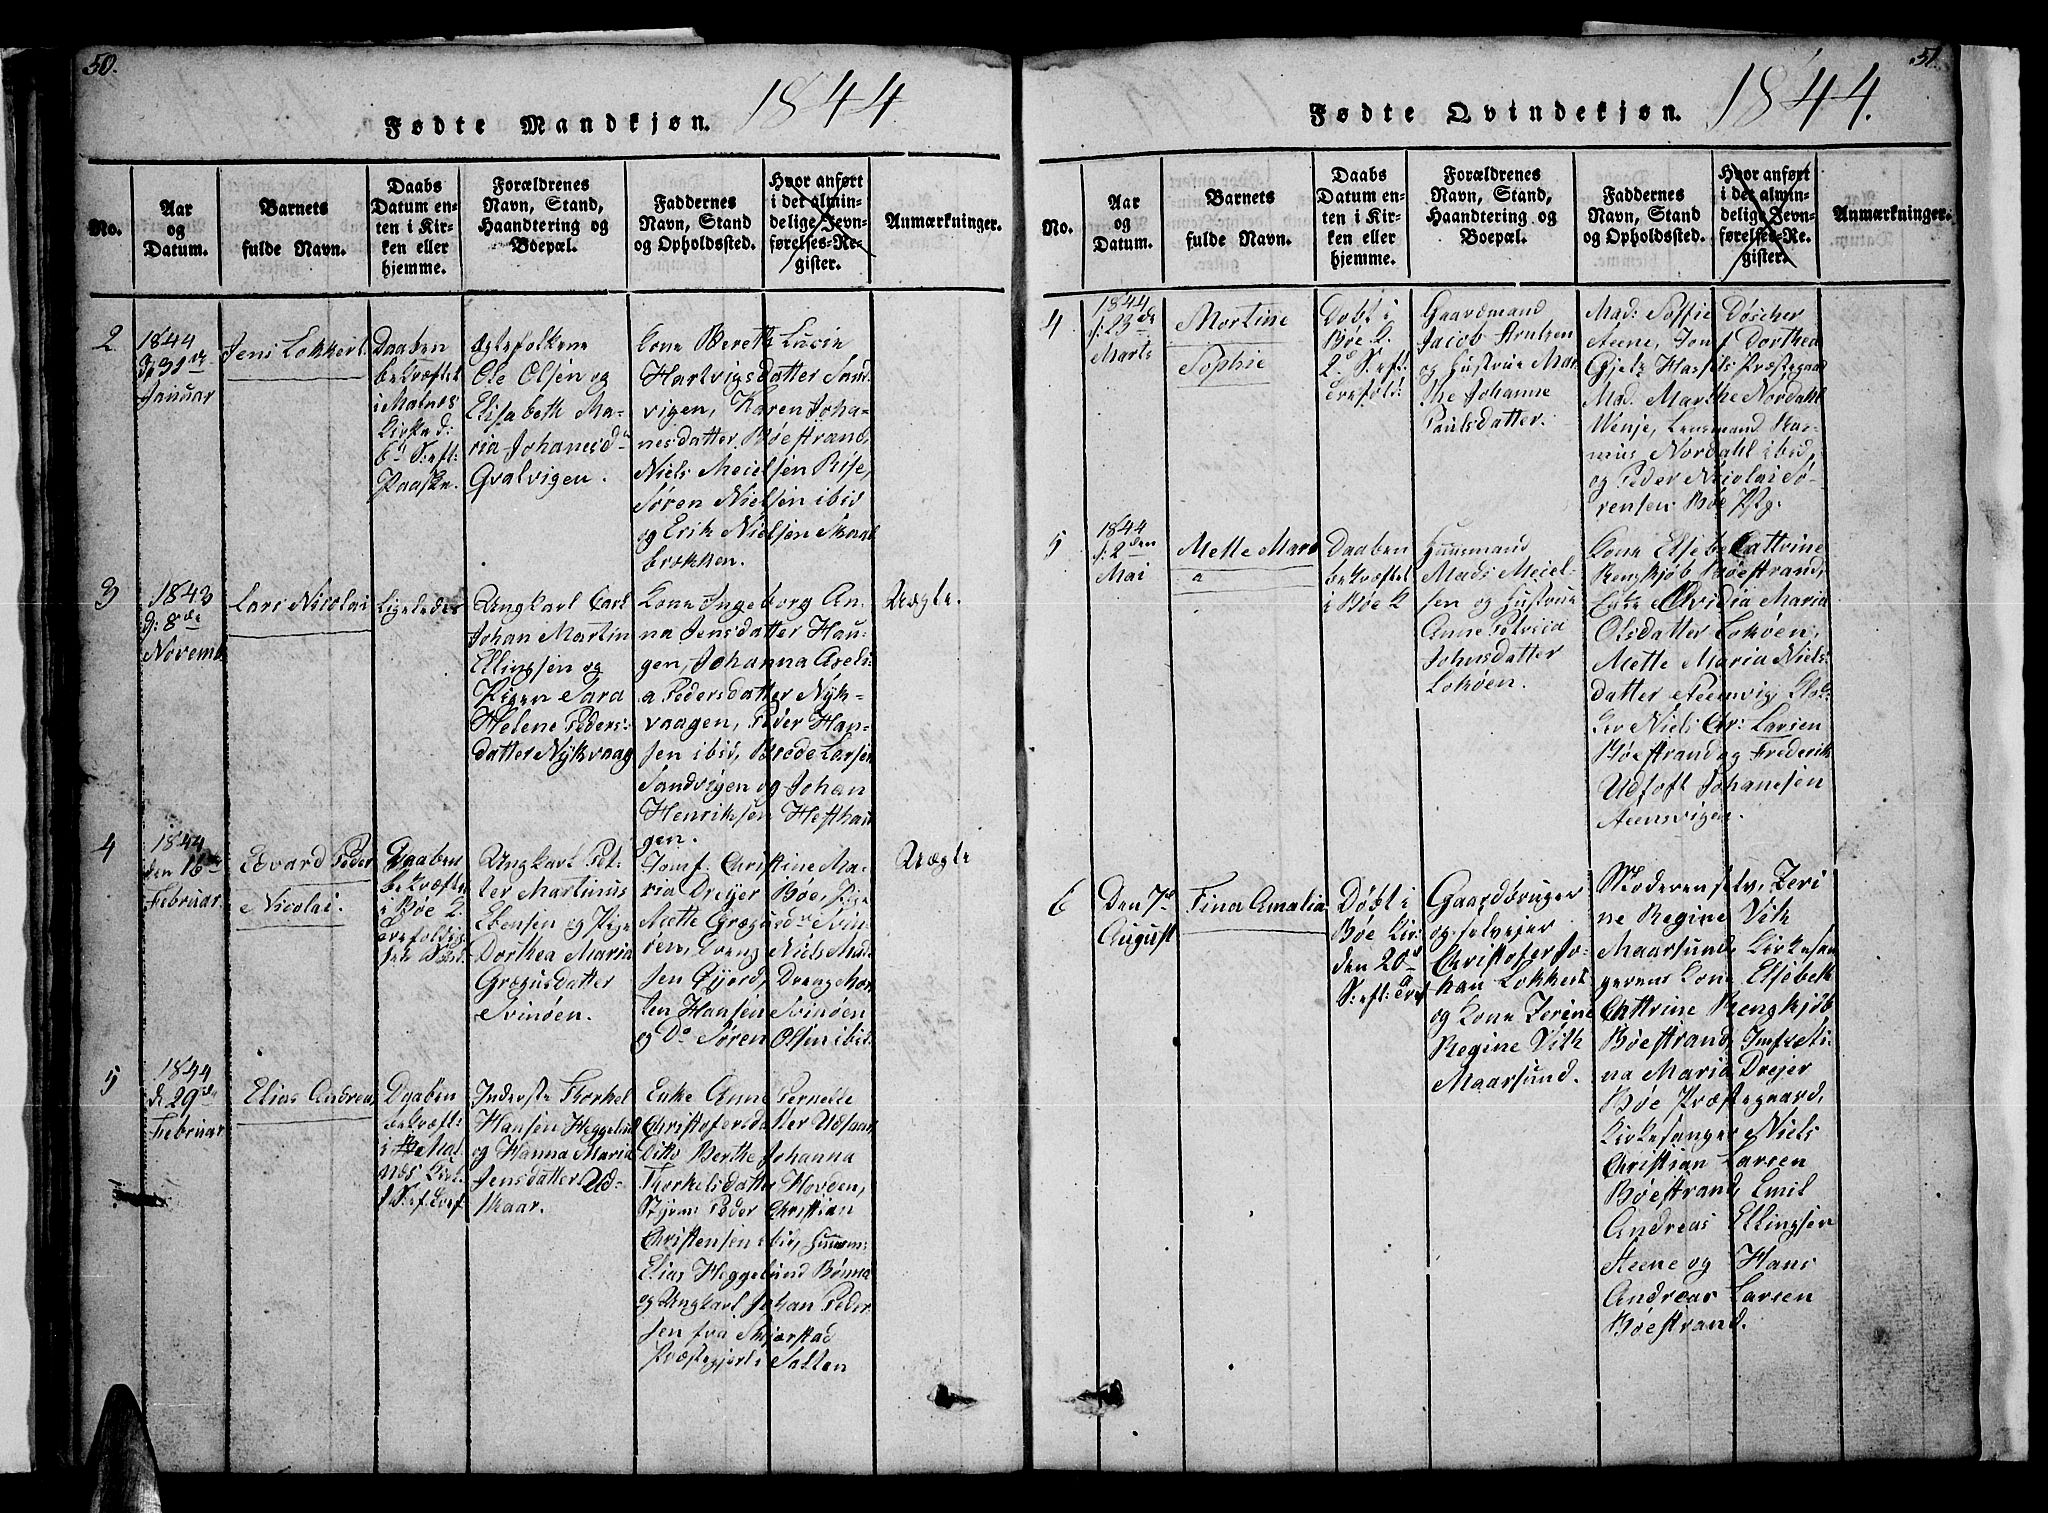 50.
1844
Fødte Mandkjøn.
No.
Aar
og
Datum.
Barnets
fulde Navn.
Daabs
Datum en-
ten i Kir-
ken eller
hjemme.
Forældrenes
Navn, Stand,
Haandtering og
Boepæl.
Faddernes
Navn, Stand
og Opholdssted.
Hvor anført
i det almin-
delige Jevn-
førelses-Re-
gister.
Anmærkninger.
2
1844
Januar
Jens Lokkert
Daaben
bekræftet
i Malnes
Kirke d:
6te S: eft:
Paaske.
Ægtefolkene
Ole Olsen og
Elisabeth Ma-
ria Johanesd
Qvalvigen.
Kone Bereth Lucie
Hartvigsdatter Sand-
vigen, Karen Joha-
nesdatter Bøestrand,
Niels Meielsen Rise,
Søren Nielsen ibid
og Erik Nielsen Skaal
brækken.
3
1843
d: 8de
Novemb
Lars Nicolai
Ligeledes
Ungkarl Carl
Johan Martin
Ellingsen og
Pigen Sara
Helene Peders-
datter Nykvaag
Kone Ingeborg An-
na Jensdatter Hau-
gen, Johanna Axeli-
a Pedersdatter Nyk-
vaagen, Peder Han-
sen ibid, Brede Larsen
Sandvigen og Johan
Henriksen Hefthau
gen.
Uægte.
4
1844
den 16de
Februar
Edvard Peder
Nicolai.
Daaben
bekræftet
i Bøe K.
Ungkarl Pet-
ter Martinus
Ebensen og Pige
Dorthea Maria
Grægusdatter
Svinøen.
Jomf. Christine Ma-
ria Dreijer Bøe, Pige
Mette Grægusdr Svin-
øen, Dreng Niels Mad-
sen Øijord, Dreng Mor-
ten Hansen Svinøen
og Do Søren Olsen ibid
Uægte
5
1844
d 29de
Februar
Elias Andrea
Daaben
bekræft:
i Mal-
næs Kirk
Inderste Thorkel
Hansen Heggelund
og Hanna Maria
Jensdatter Ud-
skaar.
Enke Anne Pernelle
Christofersdatter Udskaar
Ditto Berthe Johanna
Thorkelsdatter Hovden,
Peder Christian
Christensen ibid, Huusm:
Elias Heggelund
og Ungkarl Johan Peder
sen fra Skjerstad
Præstegjeld i Salten
51.
1844.
Fødte Qvindekjøn.
No.
Aar
og
Datum.
Barnets
fulde Navn.
Daabs
Datum en-
ten i Kir-
ken eller
hjemme.
Forældrenes
Navn, Stand,
Haandtering og
Boepæl.
Faddernes
Navn, Stand
og Opholdssted.
Hvor anført
i det almin-
delige Jevn-
førelses-Re-
gister.
Anmærkninger.
4
1844
d: 23de
Marts
Mortine
Sophie
Døbt i
Bøe K.
2d S: eft:
Trefold:
Gaardmand
Jacob Arntsen
og Hustrue Mar-
the Johanne
Paulsdatter.
Mad: Soffie Døscher
Steene, Jomf Dorthea
Præstegaard
Mad. Marthe Nordahl
Lensmand Ras-
mus Nordahl ibid,
og Peder Nicolai Sø-
rensen Bøe Pstg:
5
1844
d: 2den
Mai
Mette Mari
a
Daaben
bekræftet
i Bøe K
Huusmand
Mads Meiel-
sen og Hustrue
Anne Petricia
Johnsdatter
Lokøen.
Kone Elsebe Cattrine
Rengkjøb Bøestrand,
Enke Ovidia Maria
Olsdatter Lokøen,
Mette Maria Niels-
datter Steensvig, Klok-
ker Niels Chr: Larsen
Bøestrand og Frederik
Udtoft Johanesen
Steensvigen.
6
Den 7de
August
Fina Amalia
Døbt i
Bøe Kir:
den 20de
S: eft: Tref
Gaardbruger
og selveier
Christofer Jo-
han Lokkert
og Kone Zerine
Regine Vith
Maarsund.
Moderen selv, Zeri
ne Regine Vith
Maarsund, Kirkesan
gerens Kone Elsebeth
Cattrine Rengkjøb
Bøestrand, Jmf: Sti-
na Maria Drejer
Bøe Præstegaard,
Kirkesanger Niels
Christian Larsen
Bøestrand, Emil
Andreas Ellingsen
Steene og Hans
Andreas Larsen
Bøestrand.